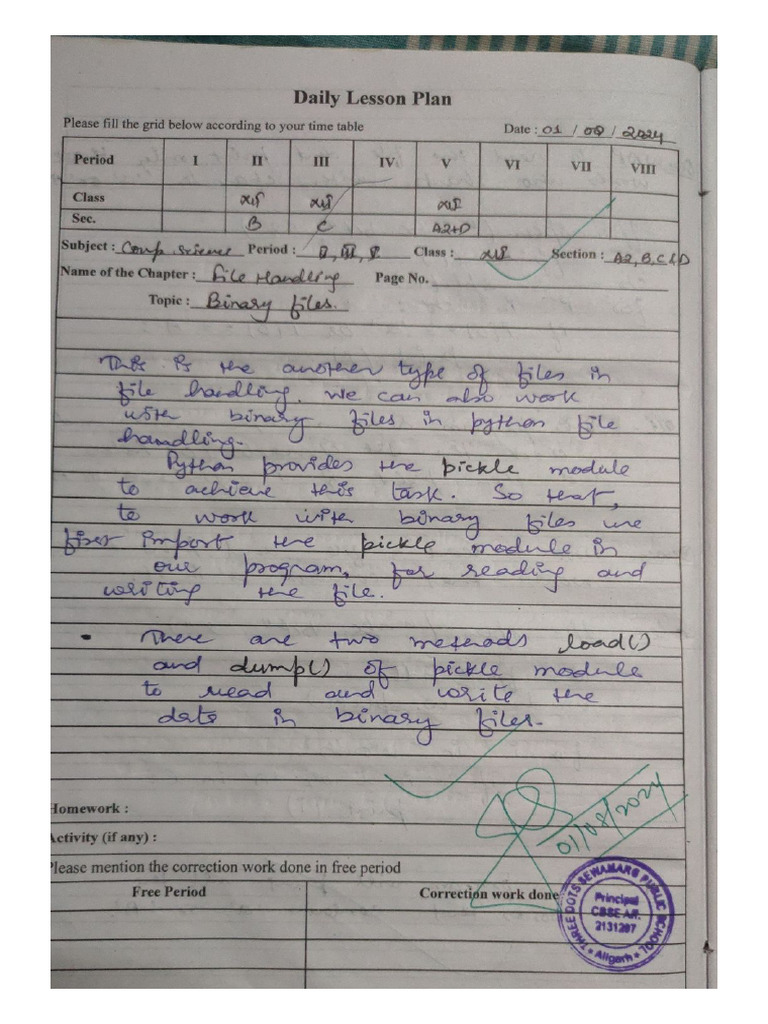 Daily Lesson Plan
Please fill the grid below according to your time table Date : 01 / 08 / 2024
Period I II III IV V VI VII VIII
Class XII XII XII
Sec. B C A2+D
Subject : Comp. science Period : II, III, V Class : XII Section : A2, B, C & D
Name of the Chapter : File Handling Page No.
Topic : Binary files.
This is the another type of files in
file handling. We can also work
with binary files in python file
handling.
Python provides the pickle module
to achieve this task. So that,
to work with binary files we
first import the pickle module in
our program, for reading and
writing the file.
• There are two methods load()
and dump() of pickle module
to read and write the
data in binary files.
Homework :
Activity (if any) :
Please mention the correction work done in free period
Free Period Correction work done
01/08/2024
THREE DOTS SEWAMARG PUBLIC SCHOOL
Principal
CBSE Aff.
2131297
Aligarh